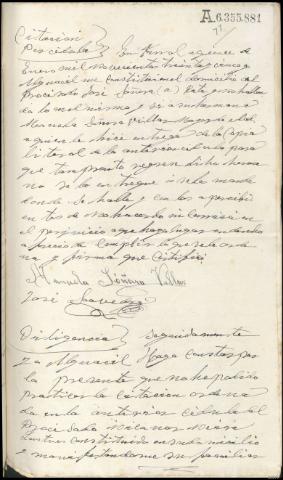 A.6.355.881
Citacion
por cédula } En Ferrol a quince de
Enero mil novecientos treinta y cinco
Alguacil me constitui en el domicilio del
Procesado José Soñora (a)
do lo mismo y su hermana
Manuela Soñora Villar mayor de edad
a quien le hice entrega de la copia
literal de la anterior cédula para
que tan pronto regrese dicho herma
no se la entregue o se la mande
donde se halle y con los apercibi
entos de no hacerlo incurrirá en
el perjuicio que haya lugar en derecho
ofreció cumplir lo que se le orde
na y firma que certifico
Manuela Soñora Villar
José Saavedra
Diligencia } Seguidamente
Yo Alguacil Hago constar por
la presente que no he podido
practicar la citacion ordena
da en la anterior cédula al
Procesado
constituido en su domicilio
y manifestandome su familia